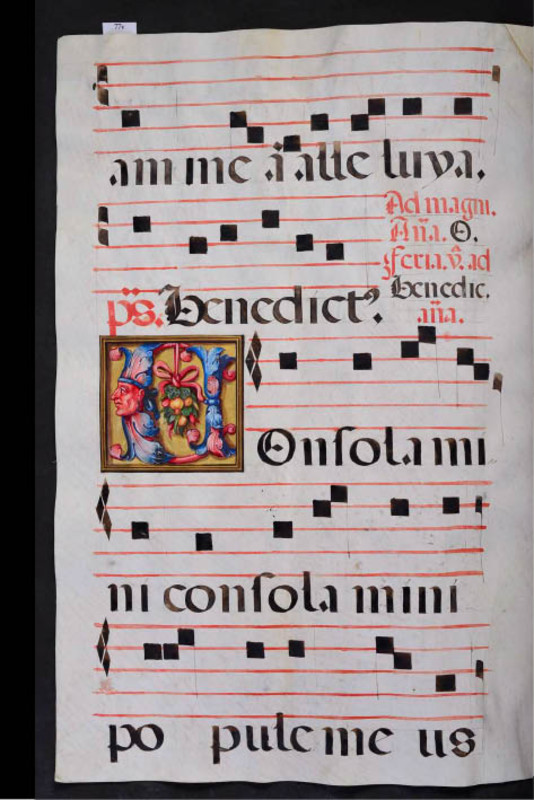 am me a̅ alle luya.
Ad magni.
Aña. O.
feria. v̇. ad
Benedic.
aña.
ps. Benedict9.
COnsolami
ni consola mini
po pule me us